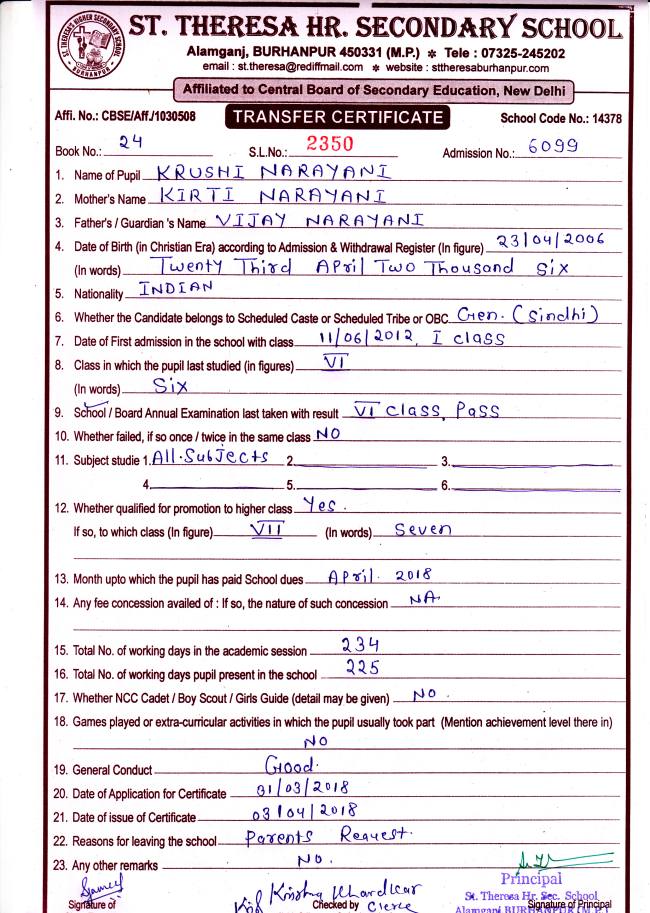 ST. THERESA HR. SECONDARY SCHOOL
Alamganj, BURHANPUR 450331 (M.P.) * Tele : 07325-245202
email : st.theresa@rediffmail.com * website : sttheresaburhanpur.com
Affiliated to Central Board of Secondary Education, New Delhi
Affi. No.: CBSE/Aff./1030508 TRANSFER CERTIFICATE School Code No.: 14378
Book No.: 24 S.L.No.: 2350 Admission No.: 6099
1. Name of Pupil KRUSHI NARAYANI
2. Mother's Name KIRTI NARAYANI
3. Father's / Guardian 's Name VIJAY NARAYANI
4. Date of Birth (in Christian Era) according to Admission & Withdrawal Register (In figure) 23/04/2006
(In words) Twenty Third April Two Thousand Six
5. Nationality INDIAN
6. Whether the Candidate belongs to Scheduled Caste or Scheduled Tribe or OBC Gen. (Sindhi)
7. Date of First admission in the school with class 11/06/2012, I class
8. Class in which the pupil last studied (in figures) VI
(In words) Six
9. School / Board Annual Examination last taken with result VI class, Pass
10. Whether failed, if so once / twice in the same class NO
11. Subject studie 1. All Subjects 2. 3.
4. 5. 6.
12. Whether qualified for promotion to higher class Yes.
If so, to which class (In figure) VII (In words) Seven
13. Month upto which the pupil has paid School dues April. 2018
14. Any fee concession availed of : If so, the nature of such concession NA
15. Total No. of working days in the academic session 234
16. Total No. of working days pupil present in the school 225
17. Whether NCC Cadet / Boy Scout / Girls Guide (detail may be given) NO.
18. Games played or extra-curricular activities in which the pupil usually took part (Mention achievement level there in)
NO
19. General Conduct Good.
20. Date of Application for Certificate 31/03/2018
21. Date of issue of Certificate 03/04/2018
22. Reasons for leaving the school Parents Request.
23. Any other remarks NO.
Principal
Krishna Khardkar
St. Theresa Hr. Sec. School
Signature of Checked by Signature of Principal
Alamganj BURHANPUR (M.P.)